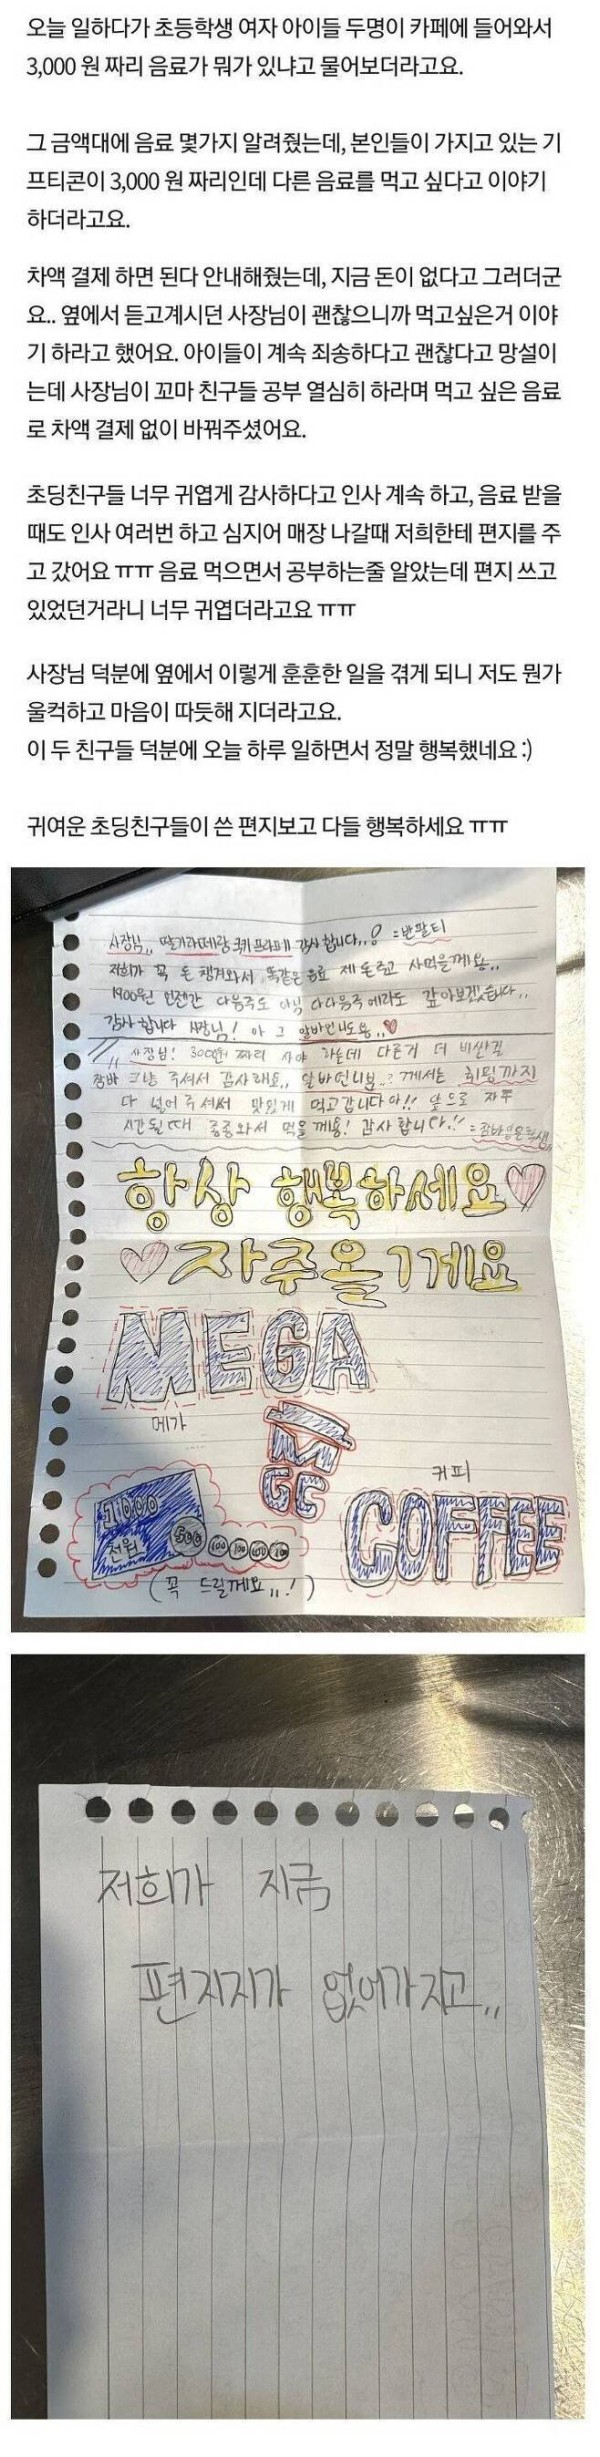 오늘 일하다가 초등학생 여자 아이들 두명이 카페에 들어와서
3,000 원 짜리 음료가 뭐가 있냐고 물어보더라고요.
그 금액대에 음료 몇가지 알려줬는데, 본인들이 가지고 있는 기
프티콘이 3,000 원 짜리인데 다른 음료를 먹고 싶다고 이야기
하더라고요.
차액 결제 하면 된다 안내해줬는데, 지금 돈이 없다고 그러더군
요.. 옆에서 듣고계시던 사장님이 괜찮으니까 먹고싶은거 이야
기 하라고 했어요. 아이들이 계속 죄송하다고 괜찮다고 망설이
는데 사장님이 꼬마 친구들 공부 열심히 하라며 먹고 싶은 음료
로 차액 결제 없이 바꿔주셨어요.
초딩친구들 너무 귀엽게 감사하다고 인사 계속 하고, 음료 받을
때도 인사 여러번 하고 심지어 매장 나갈때 저희한테 편지를 주
고 갔어요 ㅠㅠ 음료 먹으면서 공부하는줄 알았는데 편지 쓰고
있었던거라니 너무 귀엽더라고요 ㅠㅠ
사장님 덕분에 옆에서 이렇게 훈훈한 일을 겪게 되니 저도 뭔가
울컥하고 마음이 따듯해 지더라고요.
이 두 친구들 덕분에 오늘 하루 일하면서 정말 행복했네요 :)
귀여운 초딩친구들이 쓴 편지보고 다들 행복하세요 ㅠㅠ
사장님,, 딸기라떼랑 쿠키프라페 감사합니다,,! =반팔티
저희가 꼭 돈 챙겨와서 똑같은 음료 제 돈주고 사먹을께용,,
1900원 언젠간 다음주도 아님 다다음주에라도 갚아보겠습니다,,
감사합니다 사장님! 아 그 알바언니도용,,♥
사장님! 3000원 짜리 사야 하는데 다른거 더 비싼걸
그냥 주셔서 감사해요,, 알바언니분..? 께서는 휘핑까지
다 넣어주셔서 맛있게 먹고갑니다아!! 앞으로 자주
시간될때 종종와서 먹을께용! 감사합니다!!
항상 행복하세요♡
♡자주올게요
MEGA
메가
M
GC
커피
COFFEE
1000
천원
500 100 100 100 100
(꼭 드릴께요,,!)
저희가 지금
편지지가 없어가지고,,